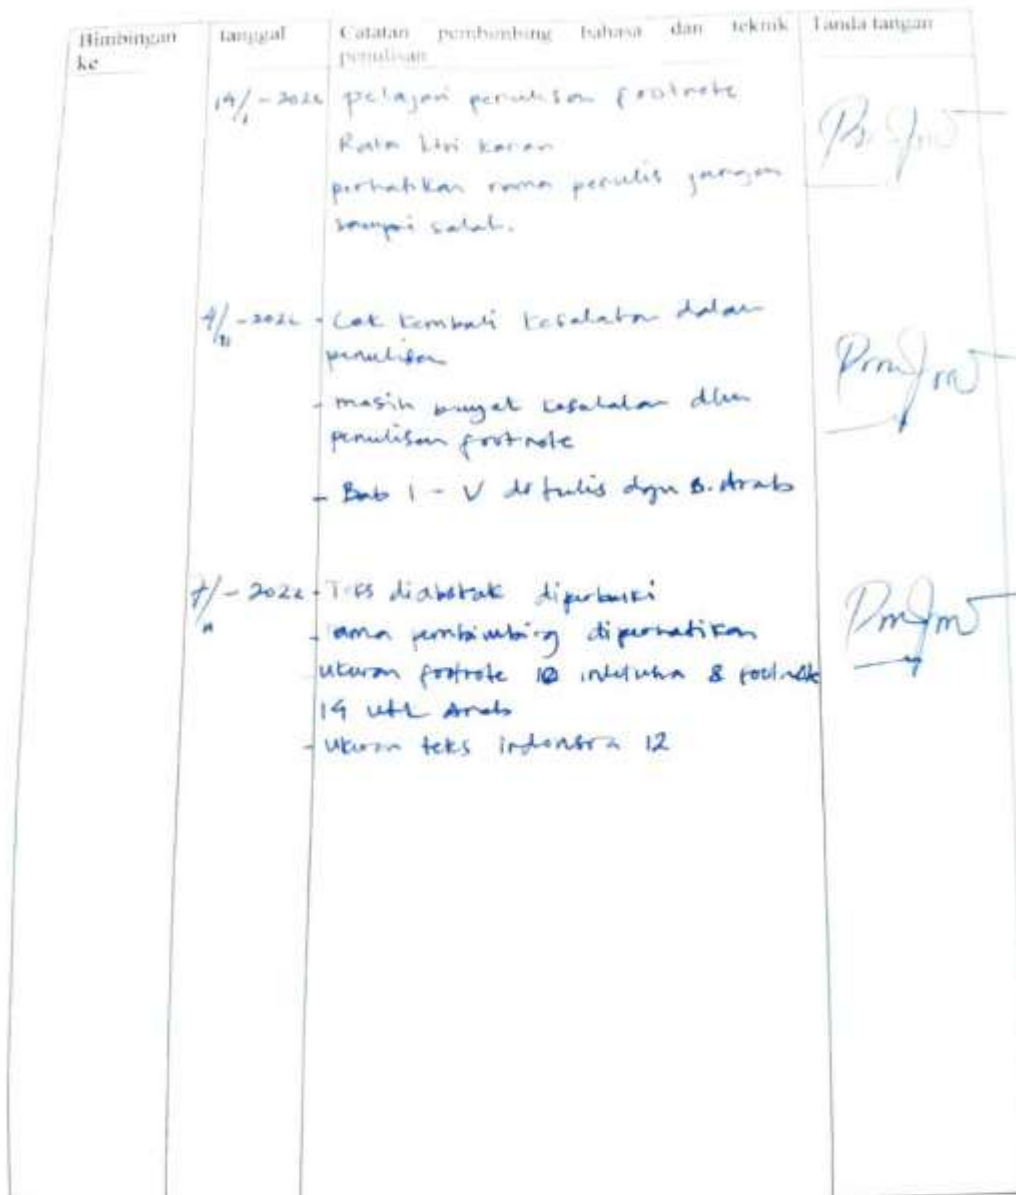 Bimbingan ke
tanggal
Catatan pembimbing bahasa dan teknik penulisan
Tanda tangan
19/1 - 2022 pelajari penulisan footnote
Rata kiri kanan
perhatikan nama penulis jangan
sampai salah.
4/11 - 2022 - Cek kembali kesalahan dalam
penulisan
- masih banyak kesalahan dlm
penulisan footnote
- Bab I - V ditulis dgn B. Arab
7/11 - 2022 - Teks diabstrak diperbaiki
- nama pembimbing diperhatikan
ukuran footnote 10 8 footnote
14 utk Arab
- ukuran teks indonesia 12